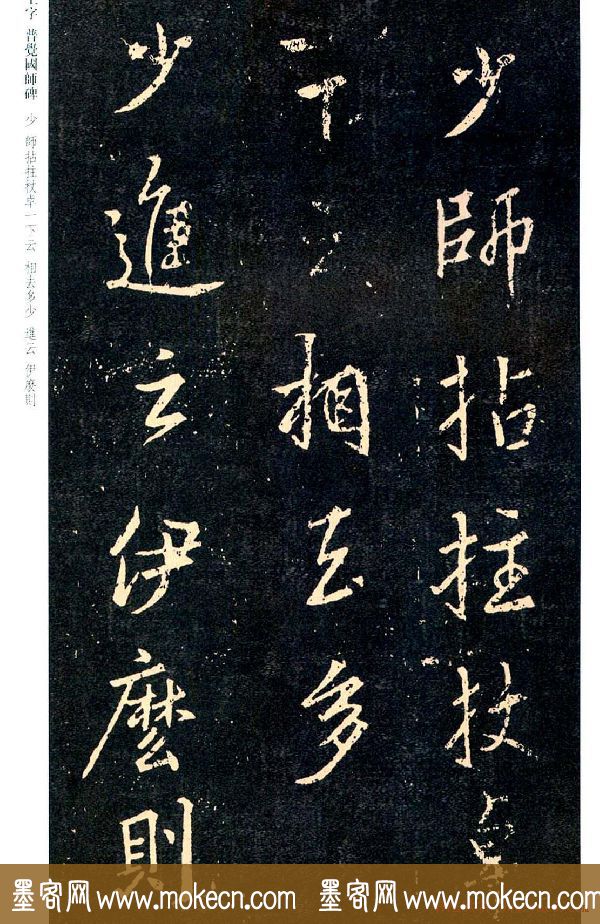 少師拈拄杖卓
一下云相去多
少進云伊麼則
字 普覺國師碑 少 師拈拄杖卓一下云 相去多少 進云 伊麼則
墨客网 www.mokecn.com 墨客网 www.mokecn.com